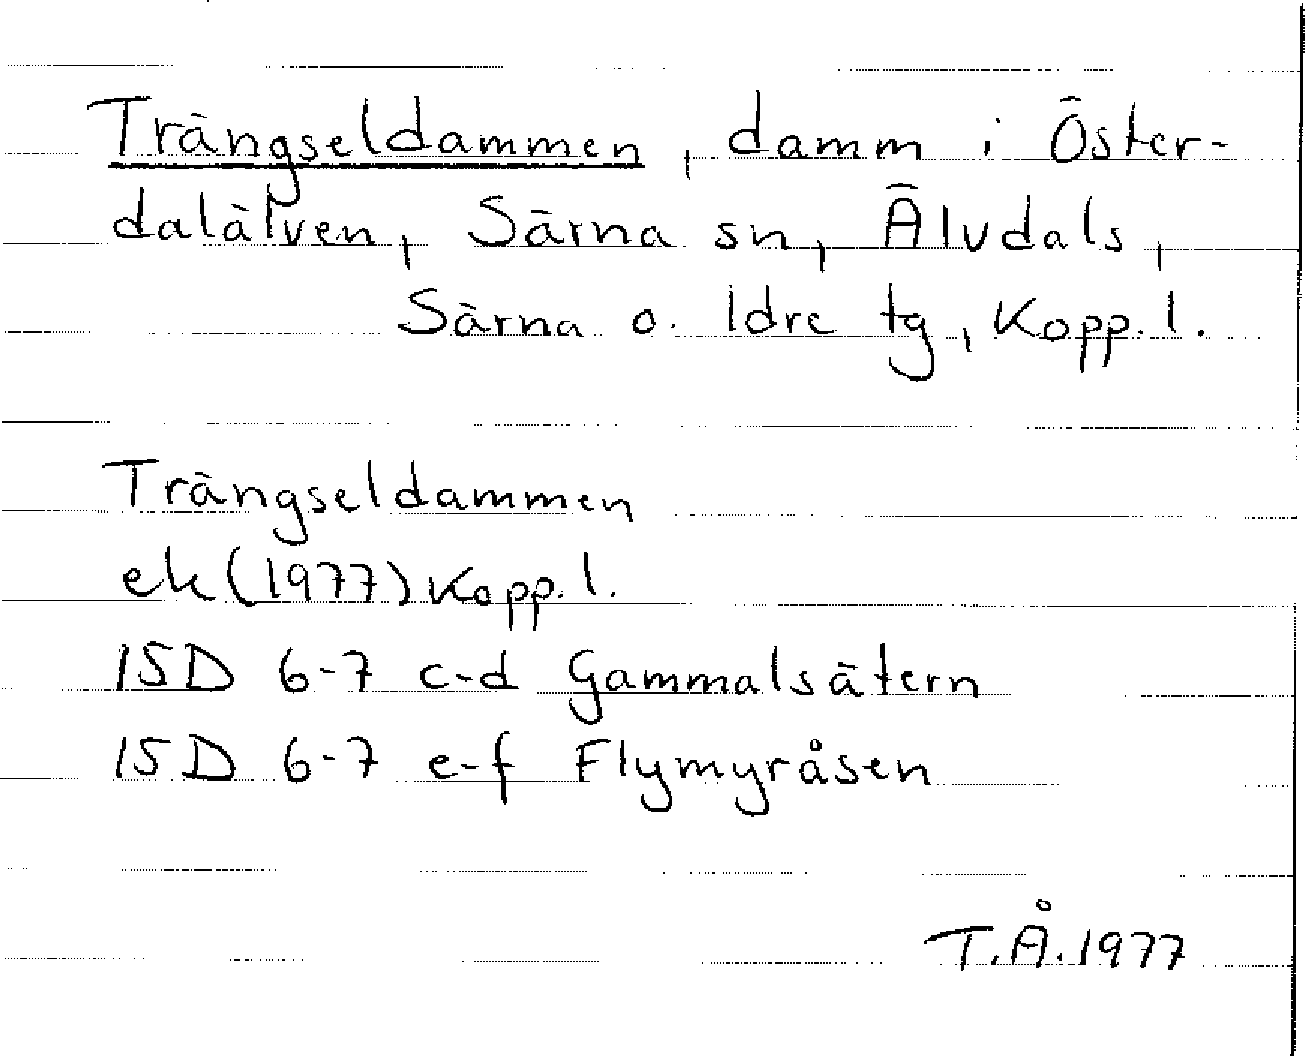 Trängseldammen, damm i Öster-
dalälven, Särna sn, Älvdals,
Särna o. Idre tg, Kopp. l.
Trängseldammen
ek (1977) Kopp. l.
15D 6-7 c-d Gammalsätern
15D 6-7 e-f Flymyråsen
T.Å. 1977